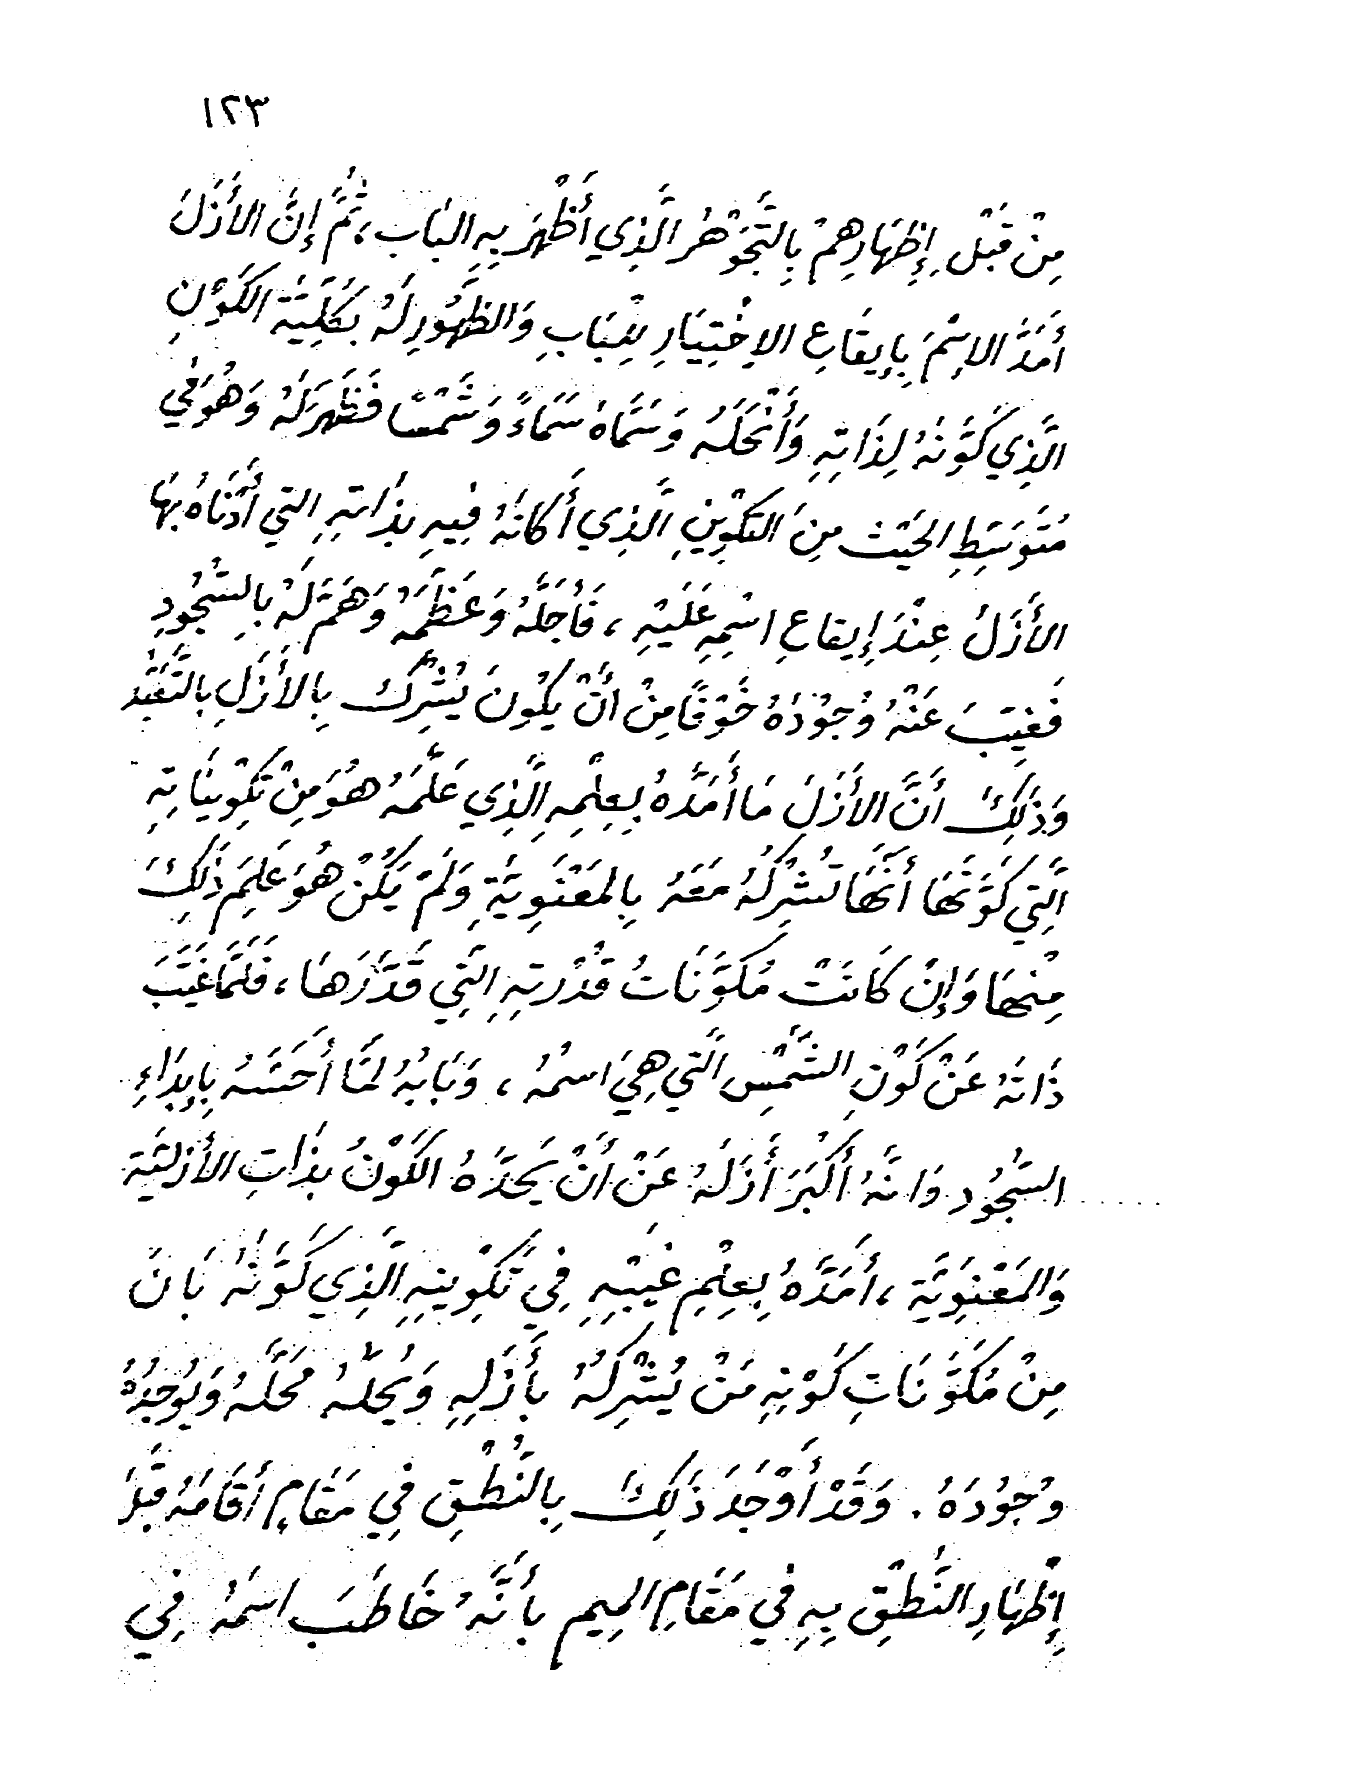 ١٢٣
مِنْ قَبْلِ إِظْهَارِهِمْ بِالتَّجَوْهُرِ الَّذِي أَظْهَرَ بِهِ البَابَ، ثُمَّ إِنَّ الأَزَلَ
أَمَدَّ الاِسْمَ بِإِيقَاعِ الاِخْتِيَارِ لِلْبَابِ وَالظُّهُورِ لَهُ بِكُلِّيَّةِ الكَوْنِ
الَّذِي كَوَّنَهُ لِذَاتِهِ وَأَنْحَلَهُ وَسَمَّاهُ سَمَاءً وَشَمْسًا فَظَهَرَ لَهُ وَهُوَ فِي
مُتَوَسِّطِ الحَيْثِ مِنَ التَّكْوِينِ الَّذِي أَكَانَهُ فِيهِ بِذَاتِهِ التي أَدْنَاهُ بِهَا
الأَزَلُ عِنْدَ إِيقاعِ اسْمِهِ عَلَيْهِ، فَأَجَلَّهُ وَعَظَّمَهُ وَهَمَّ لَهُ بِالسُّجُودِ
فَغِيَّبَ عَنْهُ وُجُوْدَهُ خَوْفًا مِنْ أَنْ يَكُونَ يُشْرِكُ بِالأَزَلِ بِالتَّعَبُّدِ
وَذَلِكَ أَنَّ الأَزَلَ مَا أَمَدَّهُ بِعِلْمِهِ الَّذِي عَلَّمَهُ هُوَ مِنْ تَكْوِينَاتِهِ
الَّتِي كَوَّنَهَا أَنَّهَا تُشْرِكُهُ مَعَهُ بِالمَعْنَوِيَّةِ وَلَمْ يَكُنْ هُوَ عَلِمَ ذَلِكَ
مِنْهَا وَإِنْ كَانَتْ مُكَوَّنَاتُ قُدْرَتِهِ الَّتِي قَدَّرَهَا، فَلَمَّا غَيَّبَ
ذَاتَهُ عَنْ كَوْنِ الشَّمْسِ الَّتِي هِيَ اسمُهُ، وَبَابُهُ لَمَّا أَحَسَّهُ بِإِبْدَاءِ
السُّجُودِ وَانَّهُ أَكْبَرَ أَزَلَهُ عَنْ أَنْ يَحُدَّهُ الكَوْنُ بِذَاتِ الأَزَلِيَّةِ
وَالمَعْنَوِيَّةِ، أَمَدَّهُ بِعِلْمِ غَيْبِهِ فِي تَكْوِينِهِ الَّذِي كَوَّنَهُ بَانَ
مِنْ مُكَوَّنَاتِ كَوْنِهِ مَنْ يُشْرِكُهُ بِأَزَلِهِ وَيُحِلُّهُ مَحَلَّهُ وَيُوجِدُهُ
وُجُوْدَهُ. وَقَدْ أَوْجَدَ ذَلِكَ بِالنُّطْقِ فِي مَقَامٍ أَقَامَهُ قَبْلَ
إِظْهَارِ النُّطْقِ بِهِ فِي مَقَامِ الميم بِأَنَّهُ خَاطَبَ اسمَهُ فِي